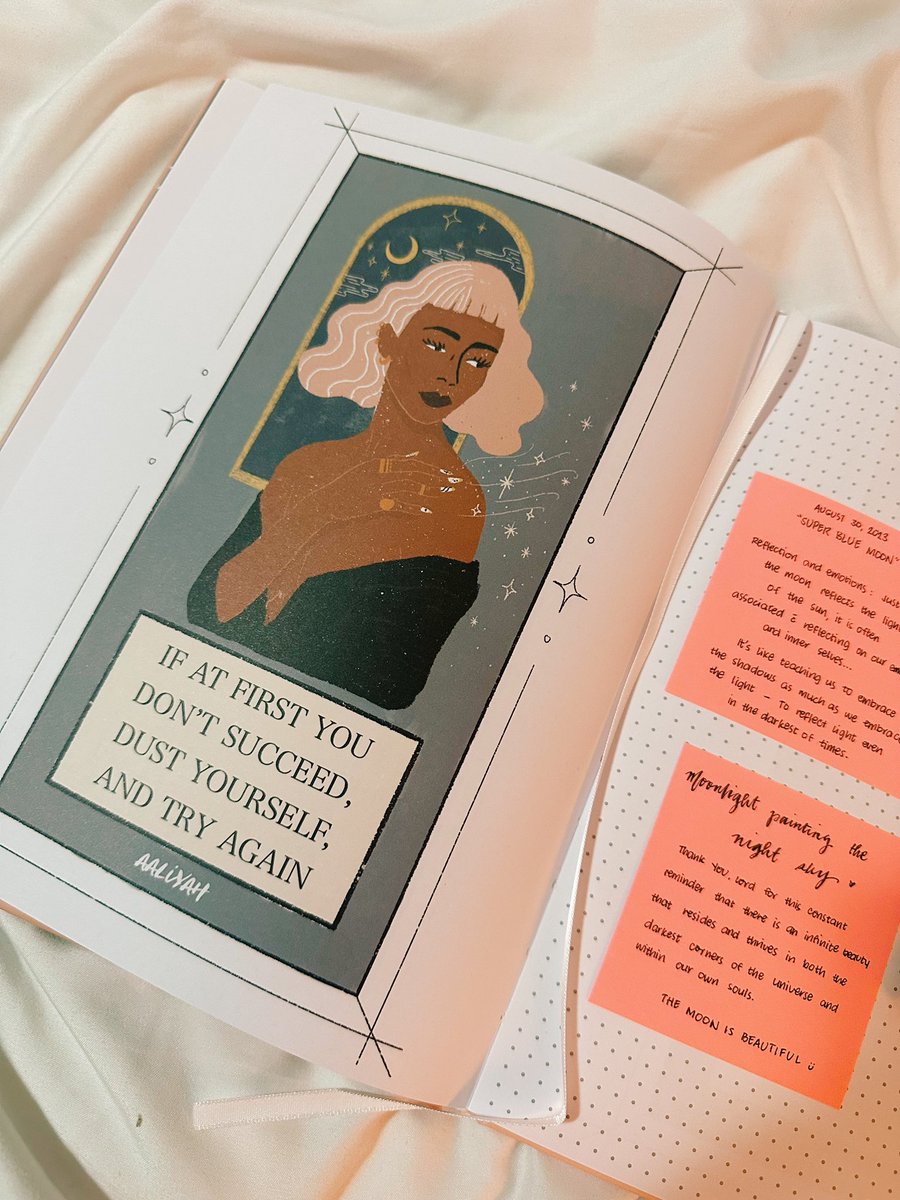 IF AT FIRST YOU
DON'T SUCCEED,
DUST YOURSELF,
AND TRY AGAIN
AALIYAH
AUGUST 30, 2023
"SUPER BLUE MOON"
Reflection and emotions: Just
the moon reflects the light
of the sun, it is often
associated c̄ reflecting on our
and inner selves...
It's like teaching us to embrace
the shadows as much as we embrace
the light – To reflect light even
in the darkest of times.
Moonlight painting the
night sky ♥
Thank You, Lord for this constant
reminder that there is an infinite beauty
that resides and thrives in both the
darkest corners of the universe and
within our own souls.
THE MOON IS BEAUTIFUL ü